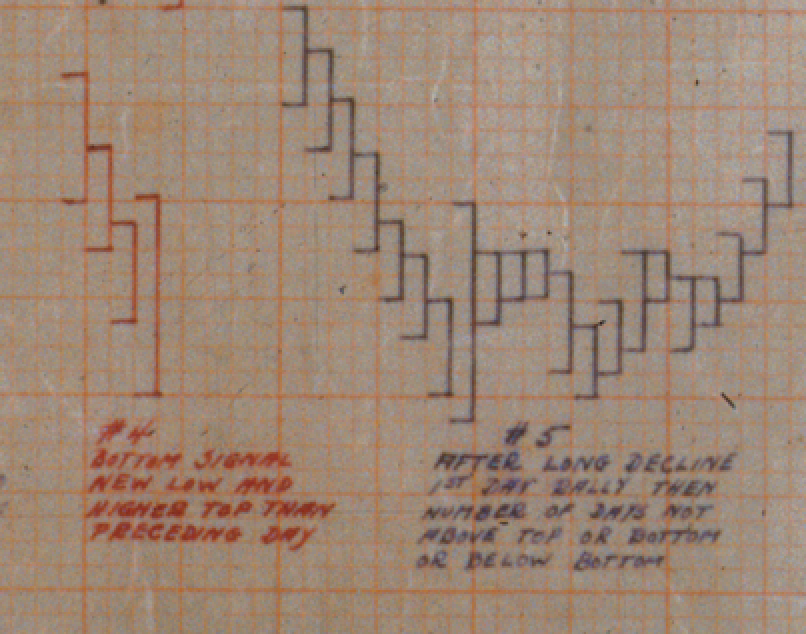 #4
BOTTOM SIGNAL
NEW LOW AND
HIGHER TOP THAN
PRECEDING DAY
#5
AFTER LONG DECLINE
1ST DAY RALLY THEN
NUMBER OF DAYS NOT
ABOVE TOP OR BOTTOM
OR BELOW BOTTOM